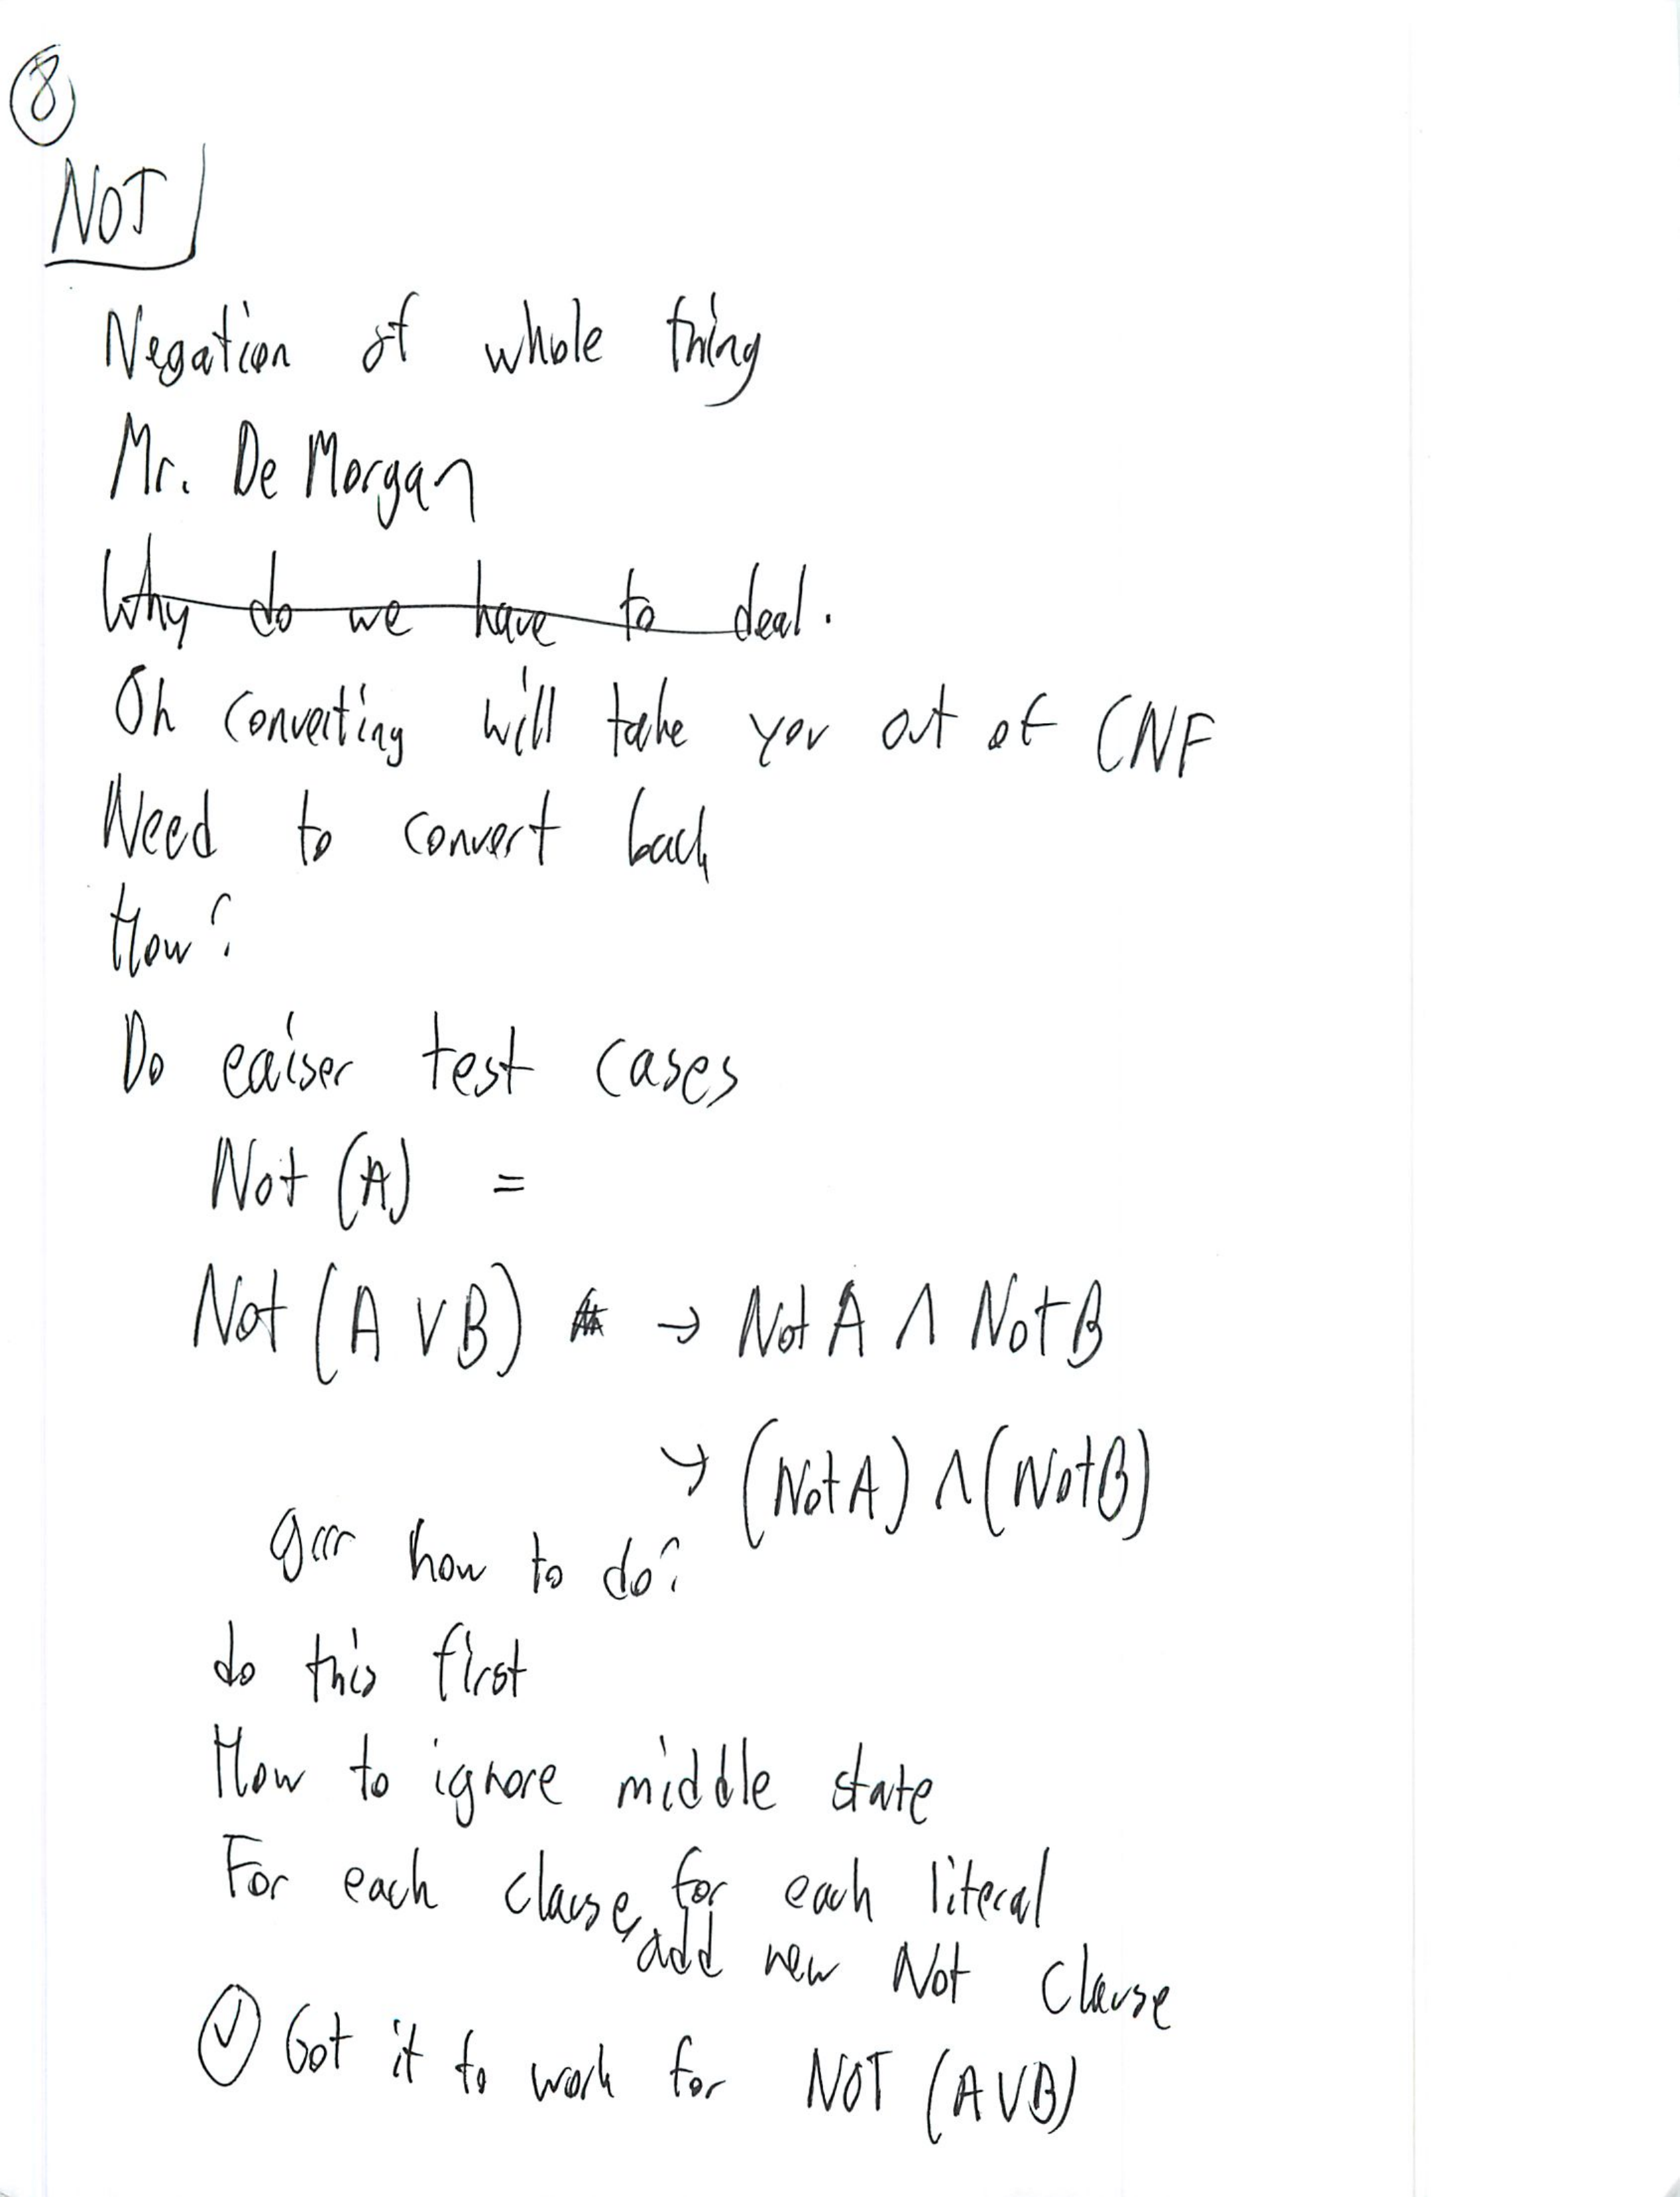 8
NOT
Negation of whole thing
Mr. De Morgan
Why do we have to deal.
Oh converting will take you out of CNF
Need to convert back
How?
Do eaiser test cases
Not (A) =
Not (A ∨ B) → Not A ∧ Not B
→ (Not A) ∧ (Not B)
grrr how to do?
do this first
How to ignore middle state
For each clause, for each literal
add new Not Clause
✓ Got it to work for NOT (A ∨ B)